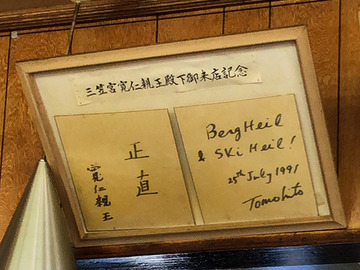 三笠宮寛仁親王殿下御来店記念
正直
寛仁親王
Berg Heil
& Ski Heil!
25th July 1991
Tomohito